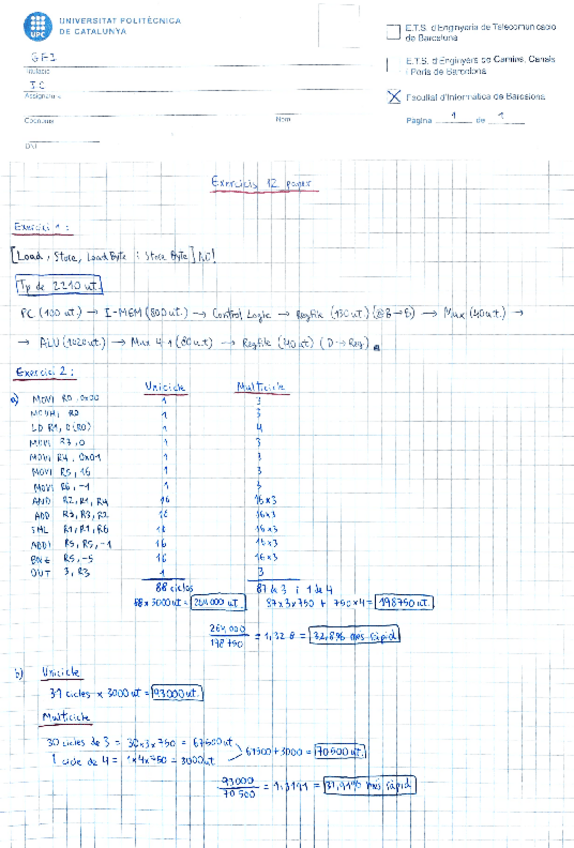 UPC
UNIVERSITAT POLITÈCNICA
DE CATALUNYA
E.T.S. d'Enginyeria de Telecomunicació
de Barcelona
E.T.S. d'Enginyers de Camins, Canals
i Ports de Barcelona
Facultat d'Informàtica de Barcelona
GEI
Titulació
IC
Assignatura
Cognoms
Nom
Pàgina 1 de 1
DNI
Exercicis 12 paper
Exercici 1:
[Load, Store, Load Byte i Store Byte] NO!
Tp de 2210 ut.
PC (100 ut.) → I-MEM (800 ut.) → Control Logic → Regfile (130 ut.) (@B→B) → Mux (40 ut.) →
→ ALU (1020 ut.) → Mux 4-1 (80 ut.) → Regfile (40 ut) (D→Reg).
Exercici 2:
Unicicle Multicicle
a) MOVI R0, 0x00 1 3
MOVHI R0 1 3
LD R1, 0(R0) 1 4
MOVI R3, 0 1 3
MOVI R4, 0x01 1 3
MOVI R5, 16 1 3
MOVI R6, -1 1 3
AND R2, R1, R4 16 16x3
ADD R3, R3, R2 16 16x3
SHL R1, R1, R6 16 16x3
ADDI R5, R5, -1 16 16x3
BNZ R5, -5 16 16x3
OUT 3, R3 1 3
88 cicles 87 de 3 i 1 de 4
88 x 3000 ut = 264000 ut. 87x3x750 + 750x4 = 198750 ut.
264,000 / 198 750 = 1,328 = 32,8% més ràpid
b) Unicicle
31 cicles x 3000 ut = 93000 ut.
Multicicle
30 cicles de 3 = 30x3x750 = 67500 ut
1 cicle de 4 = 1x4x750 = 3000 ut
67500 + 3000 = 70 500 ut.
93000 / 70 500 = 1,3191 = 31,91% més ràpid